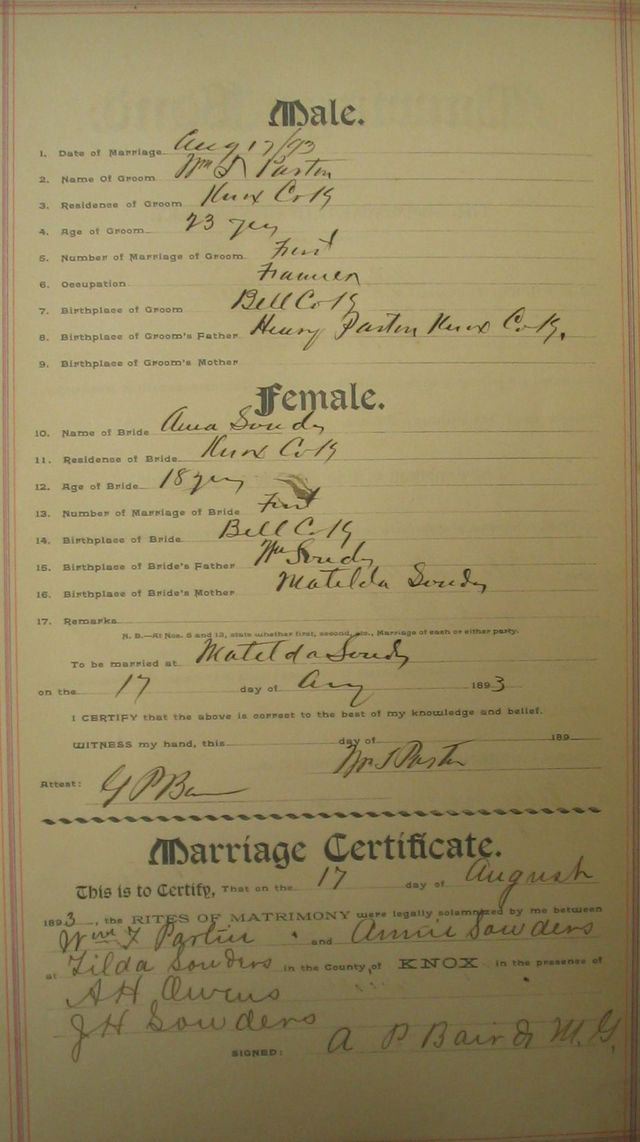 Male.
1. Date of Marriage Aug 17/93
2. Name of Groom Wm Parton
3. Residence of Groom Knox Co Ky
4. Age of Groom 23 yrs
5. Number of Marriage of Groom First
6. Occupation Framer
7. Birthplace of Groom Bell Co Ky
8. Birthplace of Groom's Father Henry Parton Knox Co Ky.
9. Birthplace of Groom's Mother
Female.
10. Name of Bride Anna
11. Residence of Bride Knox Co Ky
12. Age of Bride 18 yrs
13. Number of Marriage of Bride First
14. Birthplace of Bride Bell Co Ky
15. Birthplace of Bride's Father Wm
16. Birthplace of Bride's Mother Matilda
17. Remarks
N. B.—At Nos. 5 and 13, state whether first, second, etc., Marriage of each or either party.
To be married at Matilda
on the 17 day of Aug 1893
I CERTIFY that the above is correct to the best of my knowledge and belief.
WITNESS my hand, this day of 189
Parton
Attest: G P
Marriage Certificate.
This is to Certify, That on the 17 day of August
1893, the RITES OF MATRIMONY were legally solemnized by me between
Wm and Annie Sowders
at Tilda Sowders in the County of KNOX in the presence of
A H Owens
J H Sowders
SIGNED: A P Baird M. G.